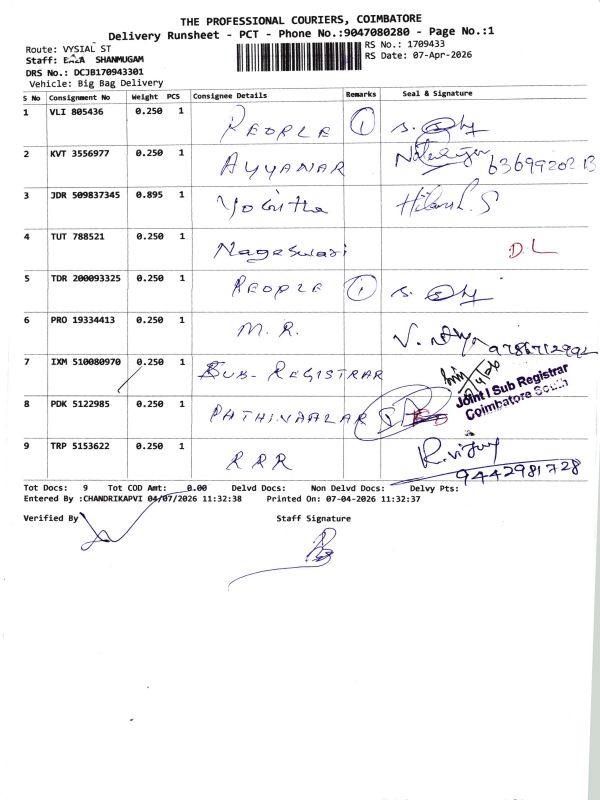 THE PROFESSIONAL COURIERS, COIMBATORE
Delivery Runsheet - PCT - Phone No.:9047080280 - Page No.:1
Route: VYSIAL ST
RS No.: 1709433
Staff: SHANMUGAM
RS Date: 07-Apr-2026
DRS No.: DCJB170943301
Vehicle: Big Bag Delivery
S No Consignment No Weight PCS Consignee Details Remarks Seal & Signature
1 VLI 805436 0.250 1 PEOPLE 1
2 KVT 3556977 0.250 1 AYYANAR
3 JDR 509837345 0.895 1 Yobitha
4 TUT 788521 0.250 1 Nageswari DL
5 TDR 200093325 0.250 1 PEOPLE 1
6 PRO 19334413 0.250 1 M.R. 9786712992
7 IXM 510080970 0.250 1 SUB-REGISTRAR
Joint I Sub Registrar
Coimbatore South
8 PDK 5122985 0.250 1 PATHINAALAR
9 TRP 5153622 0.250 1 RRR R.vijay
9442981728
Tot Docs: 9 Tot COD Amt: 0.00 Delvd Docs: Non Delvd Docs: Delvy Pts:
Entered By :CHANDRIKAPVI 04/07/2026 11:32:38 Printed On: 07-04-2026 11:32:37
Verified By Staff Signature